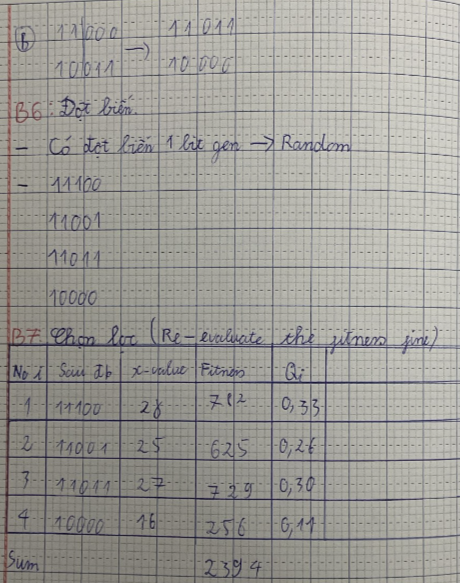 B 11000 11011
→
10011 10000
B6: Đột biến.
- Có đột biến 1 bit gen → Random
- 11100
11001
11011
10000
B7. Chọn lọc (Re-evaluate the fitness fine)
No i Sau đb x-value Fitness Qi
1 11100 28 782 0,33
2 11001 25 625 0,26
3 11011 27 729 0,30
4 10000 16 256 0,11
Sum 2394